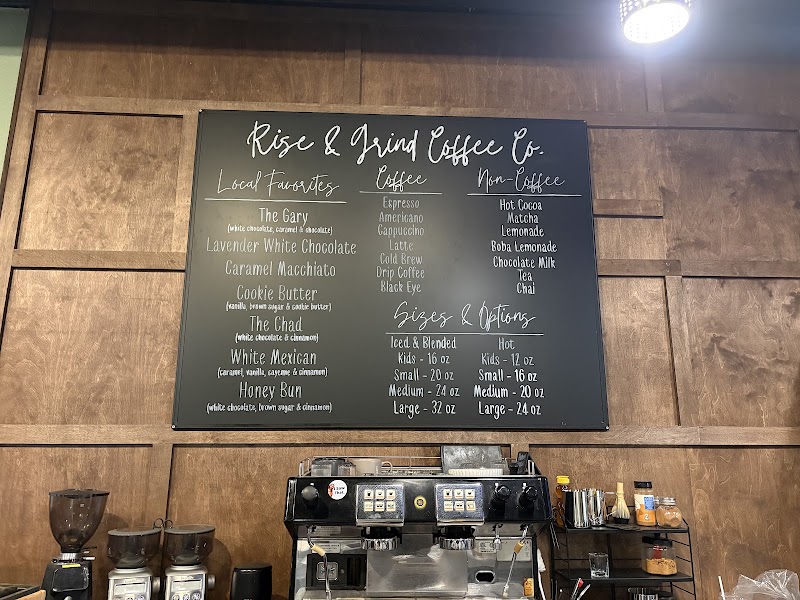 Rise & Grind Coffee Co.
Local Favorites
The Gary
(white chocolate, caramel & chocolate)
Lavender White Chocolate
Caramel Macchiato
Cookie Butter
(vanilla, brown sugar & cookie butter)
The Chad
(white chocolate & cinnamon)
White Mexican
(caramel, vanilla, cayenne & cinnamon)
Honey Bun
(white chocolate, brown sugar & cinnamon)
Coffee
Espresso
Americano
Cappuccino
Latte
Cold Brew
Drip Coffee
Black Eye
Non-Coffee
Hot Cocoa
Matcha
Lemonade
Boba Lemonade
Chocolate Milk
Tea
Chai
Sizes & Options
Iced & Blended
Kids - 16 oz
Small - 20 oz
Medium - 24 oz
Large - 32 oz
Hot
Kids - 12 oz
Small - 16 oz
Medium - 20 oz
Large - 24 oz